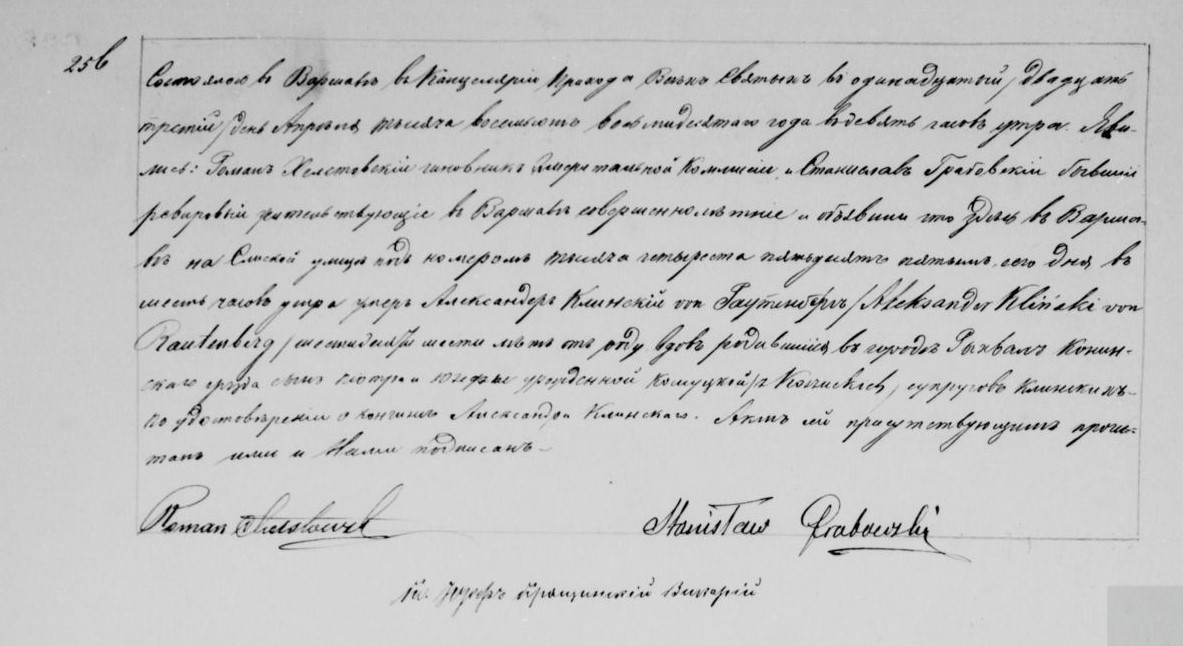 256
Состоялось въ Варшавѣ въ Канцеляріи Прихода Всѣхъ Святыхъ въ одинадцатый / двадцать
третій / день Апрѣля тысяча восемьсотъ восьмидесятаго года въ девять часовъ утра. Яви-
лись: Романъ Хелстовскій чиновникъ Эмеритальной Коммисіи и Станиславъ Грабовскій бывшій
ревировый жительствующіе въ Варшавѣ совершеннолѣтніе и объявили что здѣсь въ Варша-
вѣ на Слиской улицѣ подъ номеромъ тысяча четыреста пятьдесятъ пятымъ, сего дня въ
шесть часовъ утра умеръ Александеръ Клинскій von Раутенбергъ / Aleksander Kliński von
Rautenberg / шестидесяти шести лѣтъ отъ роду вдовъ родившійся въ городѣ Рыхвалѣ Конин-
скаго уѣзда сынъ Петра и Юзефы урожденной супруговъ Клинскихъ.-
По удостовѣреніи о кончинѣ Александра Клинскаго. Актъ сей присутствующимъ прочи-
танъ ими и Нами подписанъ.-
Roman Chełstowski Stanisław Grabowski
Кс. Іосифъ Викарій